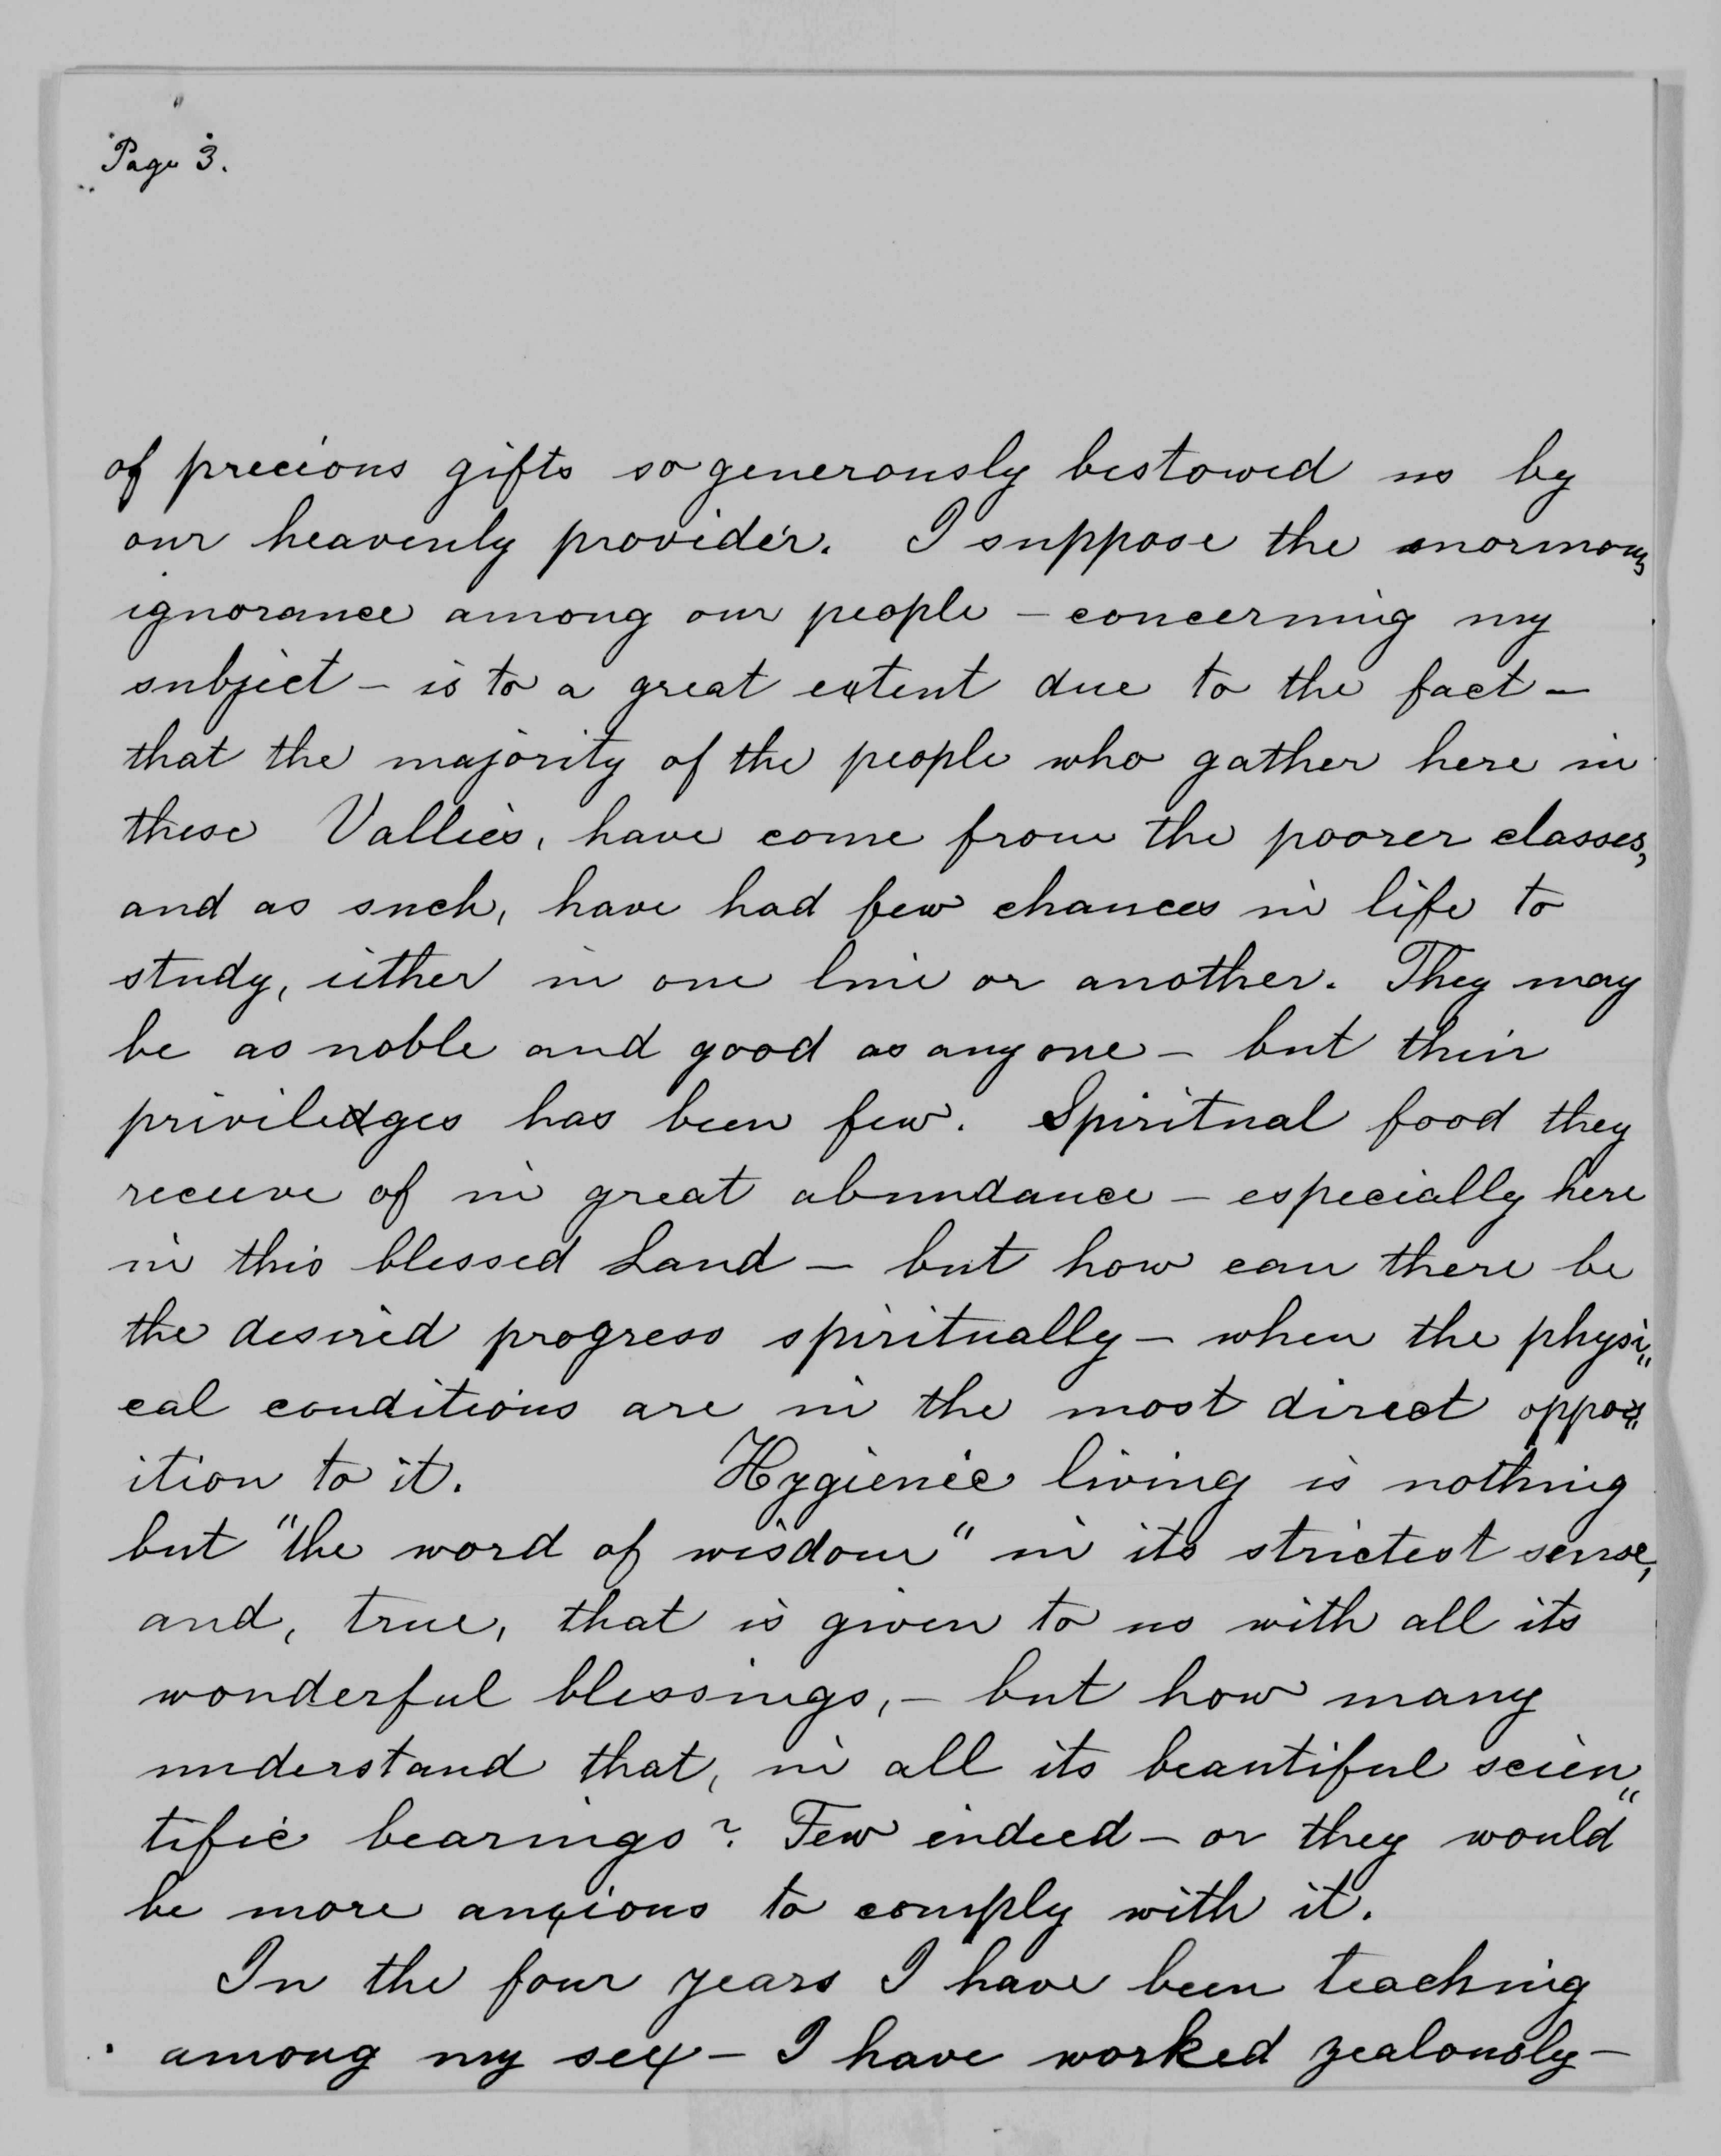 Page 3.
of precious gifts so generously bestowed us by
our heavenly provider. I suppose the enormous
ignorance among our people – concerning my
subject – is to a great extent due to the fact –
that the majority of the people who gather here in
these Vallies, have come from the poorer classes,
and as such, have had few chances in life to
study, either in one line or another. They may
be as noble and good as any one – but their
priviledges has been few. Spiritual food they
receive of in great abundance – especially here
in this blessed Land – but how can there be
the desired progress spiritually – when the physi„
cal conditions are in the most direct oppos„
ition to it. Hygienic living is nothing
but "the word of wisdom" in its strictest sense,
and, true, that is given to us with all its
wonderful blessings, – but how many
understand that, in all its beautiful scien„
tific bearings? Few indeed – or they would
be more anxious to comply with it.
In the four years I have been teaching
among my sex – I have worked zealously –